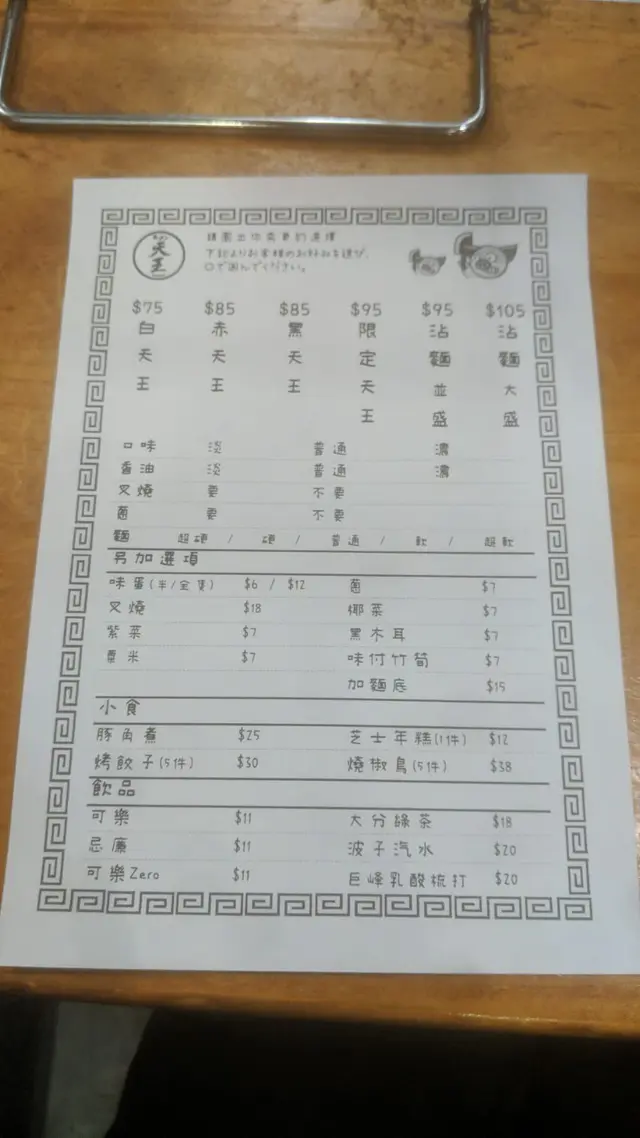 天王
請圈出你需要的選擇
下記よりお客様のお好みを選び、
○で囲んでください。
$75 $85 $85 $95 $95 $105
白天王 赤天王 黑天王 限定天王 沾麵並盛 沾麵大盛
口味 淡 普通 濃
香油 淡 普通 濃
叉燒 要 不要
蔥 要 不要
麵 超硬 / 硬 / 普通 / 軟 / 超軟
另加選項
味蛋(半/全隻) $6 / $12 蔥 $7
叉燒 $18 椰菜 $7
紫菜 $7 黑木耳 $7
粟米 $7 味付竹筍 $7
加麵底 $15
小食
豚角煮 $25 芝士年糕(1件) $12
烤餃子(5件) $30 燒椒鳥(5件) $38
飲品
可樂 $11 大分綠茶 $18
忌廉 $11 波子汽水 $20
可樂Zero $11 巨峰乳酸梳打 $20